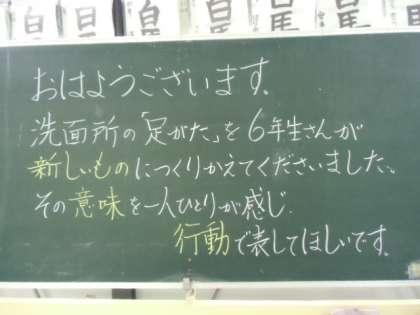 おはようございます。
洗面所の「足がた」を6年生さんが
新しいものにつくりかえてくださいました。
その意味を一人ひとりが感じ
行動で表してほしいです。